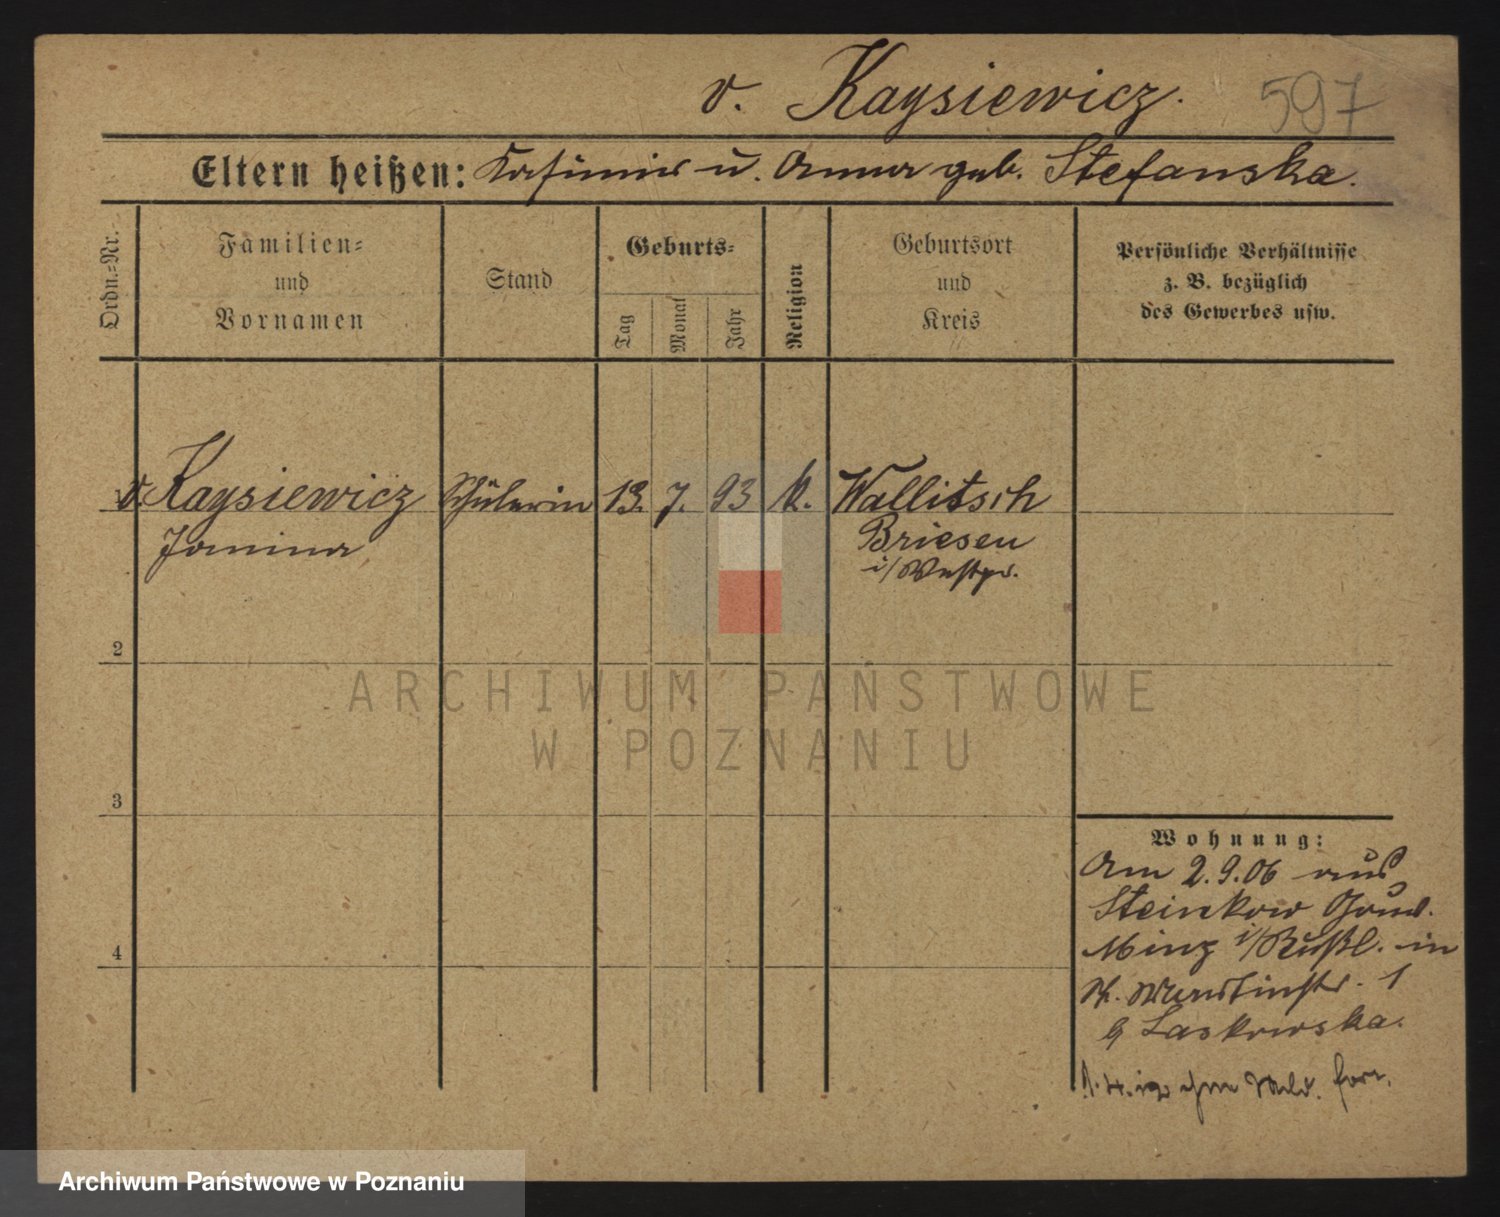 v. Kaysiewicz. 597
Eltern heißen: Kasimir u. Anna geb. Stefanska.
Ordn.=Nr.
Familien=
und
Vornamen
Stand
Geburts=
Tag
Monat
Jahr
Religion
Geburtsort
und
Kreis
Persönliche Verhältnisse
z. B. bezüglich
des Gewerbes usw.
v. Kaysiewicz Schülerin 13. 7. 93 k. Wallitsch
Janina Briesen
i/Westpr.
2
3
4
Wohnung:
Am 2.9.06 aus
Steinkow Gouv.
i/Rußl. in
St. Martinstr. 1
Laskowska.
ARCHIWUM PAŃSTWOWE
W POZNANIU
Archiwum Państwowe w Poznaniu